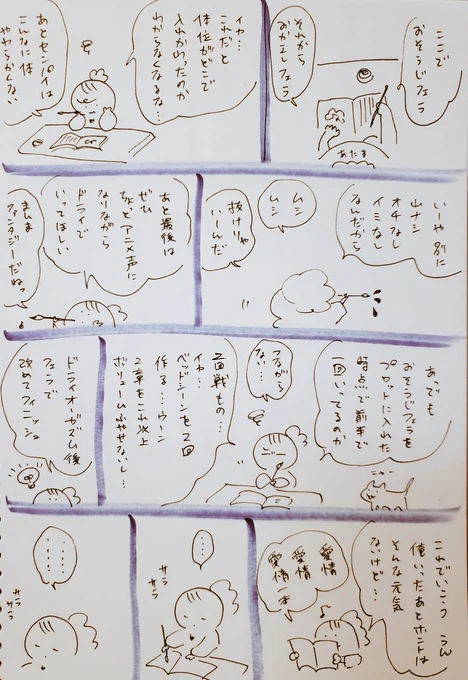 ここで
おそうじフェラ
それから
おかえしフェラ
あたま
イヤ…
これだと
体位がどこで
入れかわったのか
わからなくなるな…
あとセンパイは
こんなに体
やわらかくない
いーや 別に
山ナシ
オチなし
イミなし
なんだから
ムシ
ムシ
抜けりゃ
いーんだ
あと最後は
ぜひ
ちょっとアニメ声に
なりながら
ドライで
いってほしい
まぁよ
ファンタジーだねっ
あっでも
おそうじフェラを
プロットに入れた
時点で前半で
一回いってるのか
ニャー
つながら
ない…
2回戦もの…
イヤ…
ベッドシーンを2回
作る…ウーン
2章をこれ以上
ボリュームふやせないし…
ドライオーガズム後
フェラで
改めてフィニッシュ
これでいこう うん
俺いったあとホントは
そんな元気
ないけど…
愛情
愛情
愛情一本
……
サラ
サラ
……
サラ
サラ